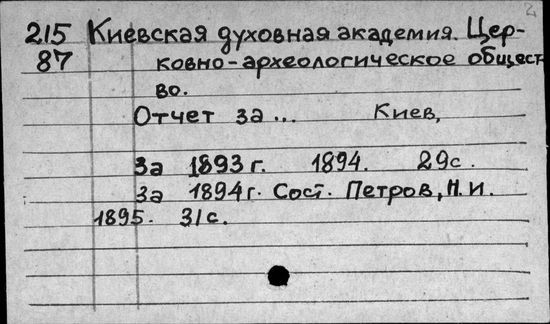 215 Киевская духовная академия. Цер-
87 ковно-археологическое общест-
во.
Отчет за... Киев,
За 1893 г. 1894. 29с.
За 1894г. Сост. Петров, Н.И.
1895. 31с.